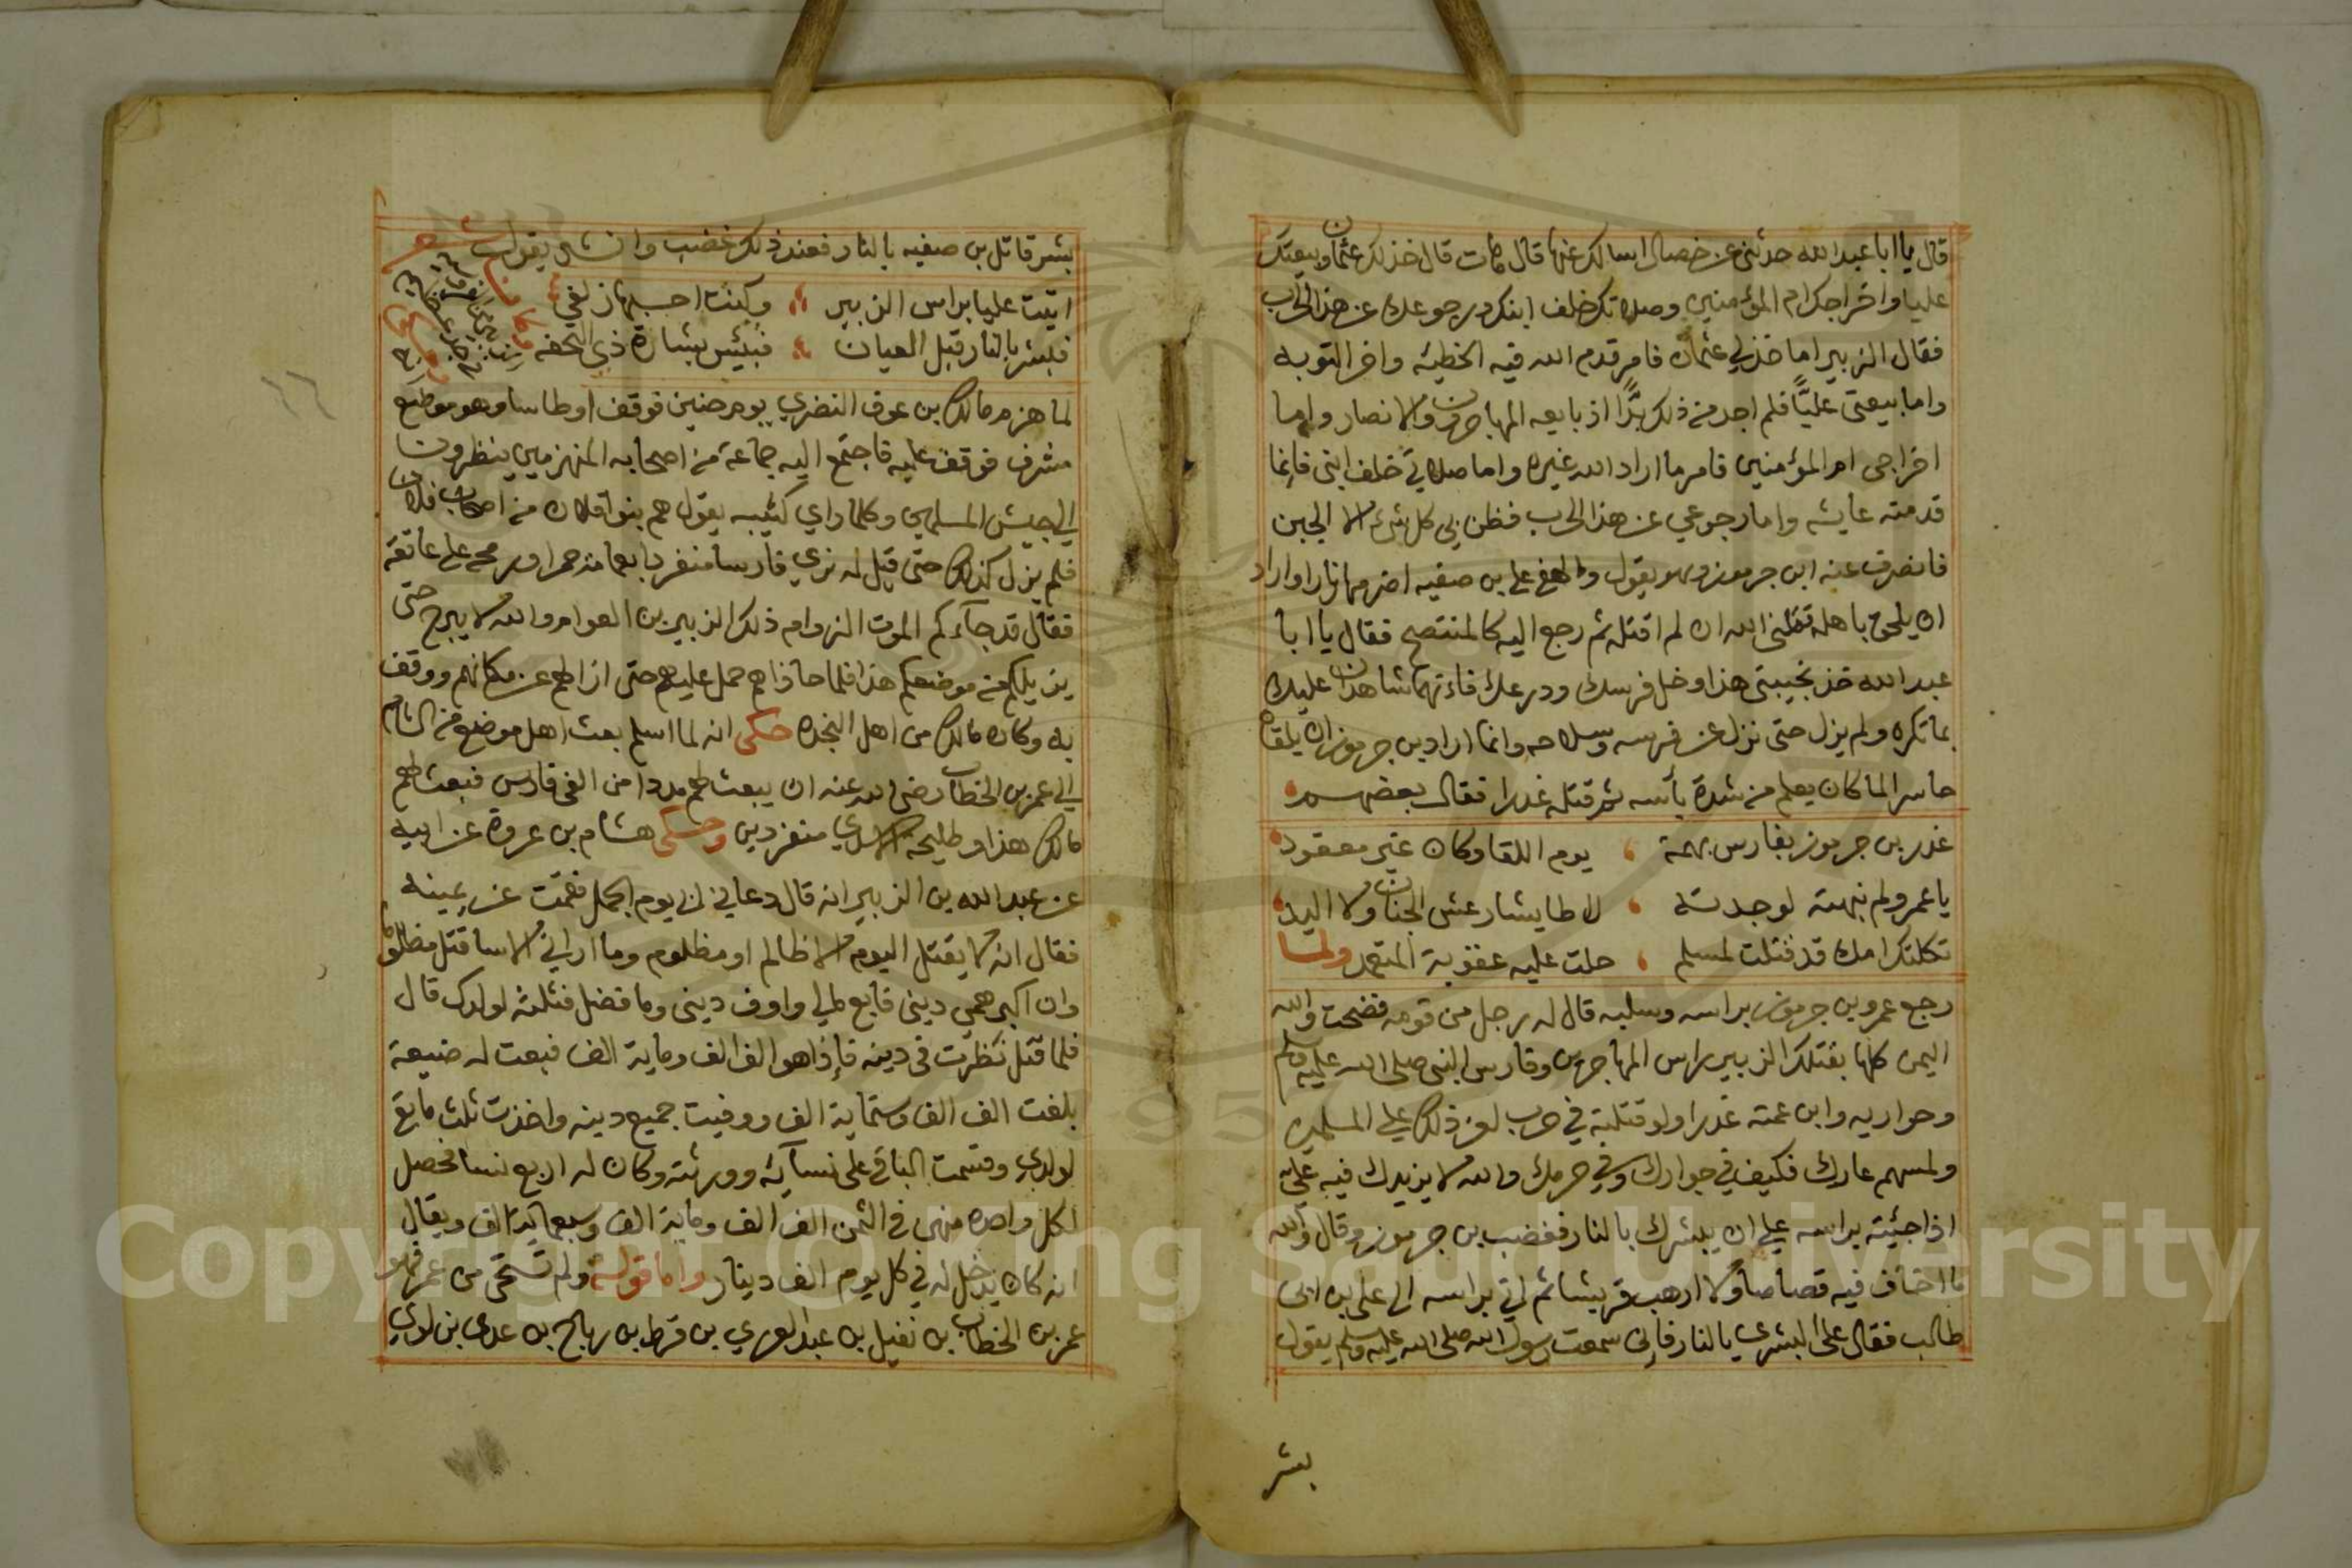 قال يا ابا عبد الله حدثني عن خصال اسالك عنها قال هات قال خذلك عثمان وبيعتك
عليا واخراجك ام المؤمنين وصلاتك خلف ابنك ورجوعك عن هذا الحرب
فقال الزبير اما خذلي عثمان فامر قدم الله فيه الخطيئه واخر التوبه
واما بيعتي عليًّا فلم اجد من ذلك بدًّا اذ بايعه المهاجرون والانصار واما
اخراجي ام المؤمنين فامر ما اراد الله غيره واما صلاتي خلف ابني فإنما
قدمته عايشه واما رجوعي عن هذا الحرب فظن بي كل شئ الا الجبن
فانصرف عنه ابن جرموز وهو يقول والهفي علي بن صفيه اضرمها نارا واراد
ان يلحق باهله قتلني الله ان لم اقتله ثم رجع اليه كالمنتصح فقال يا ابا
عبد الله خذ نجيبتي هذا وخل فرسك ودرعك فانهما شاهدان عليك
بما تكره ولم يزل حتى نزل عن فرسه وسلاحه وانما اراد بن جرموز ان يلقاه
حاسرا لما كان يعلم من شدة بأسه ثم قتله غدرا فقال بعضهم
غدر بن جرموز بفارس بهمة يوم اللقا وكان غير معقود
يا عمرو لم نبهته لوجدته لا طايشا رعش الجنان ولا اليد
ثكلتك امك قد قتلت لمسلم حلت عليه عقوبة المتعمد ولما
رجع عمرو بن جرموز براسه وسلبه قال له رجل من قومه فضحت والله
اليمن كلها بقتلك الزبير راس المهاجرين وفارس النبي صلى الله عليه وسلم
وحواريه وابن عمته غدرا ولو قتلته في حرب لعز ذلك علي المسلمين
ولمسهم عارك فكيف في جوارك وفي حرمك والله لا يزيدك فيه علي
اذا جئته براسه علي ان يبشرك بالنار فغضب بن جرموز وقال والله
ما اخاف فيه قصاصا ولا ارهب قريشا ثم اتي براسه الى علي بن ابي
طالب فقال علي ابشري بالنار فإني سمعت رسول الله صلى الله عليه وسلم يقول
بشر
بشر قاتل بن صفيه بالنار فعند ذلك غضب وانشد يقول شعر
اتيت عليا براس الزبير وكنت احسبها زلفي
فبشر بالنار قبل العيان فبئس بشارة ذي التحفه
لما هزم مالك بن عوف النضري يوم حنين فوقف اوطاسا وهو موضع
مشرف فوقف عليه فاجتمع اليه جماعة من اصحابه المنهزمين ينظرون
الي جيش المسلمين وكلما راي كتيبه يقول هم بنوا فلان من اصحاب فلان
فلم يزل كذلك حتى قيل له نري فارسا منفردا بعمامه حمرا ورمحه علي عاتقه
فقال قد جآءكم الموت الزوام ذلك الزبير بن العوام والله لا يبرح حتى
يزيلكم من موضعكم هذا فلما حاذاهم حمل عليهم حتى ازالهم عن مكانهم ووقف
به وكان مالك من اهل النجده حكي انه لما اسلم بعث اهل موضع من الشام
الي عمر بن الخطاب رضي الله عنه ان يبعث لهم مددا من الفي فارس فبعث لهم
مالك هذا وطليحة الاسدي منفردين وحكي هشام بن عروة عن ابيه
عن عبد الله بن الزبير انه قال دعاني ابي يوم الجمل فقمت عن يمينه
فقال انه لا يقتل اليوم الا ظالم او مظلوم وما اراني الا ساقتل مظلوما
وان اكبر همي ديني فابع مالي واوف ديني وما فضل فثلثه لولدك قال
فلما قتل نظرت في دينه فإذا هو الف الف ومايه الف فبعت له ضيعة
بلغت الف الف وستماية الف ووفيت جميع دينه واخذت ثلث مابقي
لولدي وقسمت الباقي على نسآئه وورثته وكان له اربع نسا فحصل
لكل واحده منهن في الثمن الف الف وماية الف وسبعماية الف ويقال
انه كان يدخل له في كل يوم الف دينار واما قوله ولم تستحي من عمر فهو
عمر بن الخطاب بن نفيل بن عبد العزي بن قرط بن رباح بن عدي بن لوي